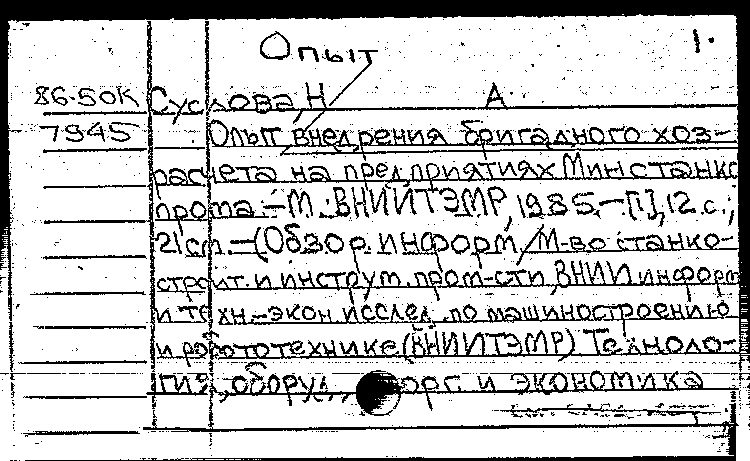 Опыт
1.
86-50К Суслова, Н А
7945 Опыт внедрения бригадного хоз-
расчета на предприятиях Минстанко
прома.-М.:ВНИИТЭМР, 1985.-[1], 12 с.;
21 см.-(Обзор. информ./М-во станко-
строит. и инструм. пром-сти, ВНИИ информ
и техн.-экон. исслед. по машиностроению
и робототехнике (ВНИИТЭМР) Техноло-
гия, оборуд., орг. и экономика